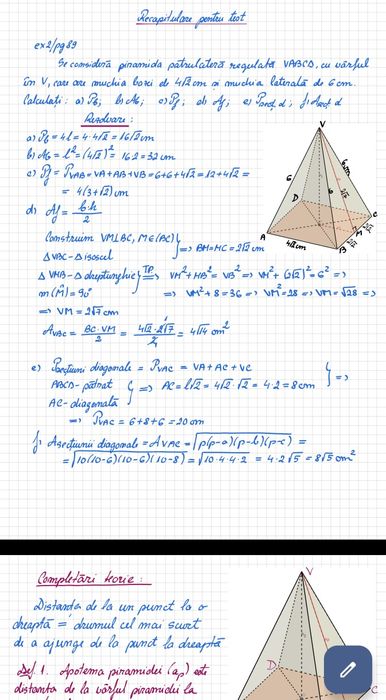 Recapitulare pentru test
ex2/pg89
Se consideră piramida patrulateră regulată VABCD, cu vârful
în V, care are muchia bazei de 4√2 cm și muchia laterală de 6 cm.
Calculați: a) Pb; b) Ab; c) Pf; d) Af; e) Psecț d; f) Asecț d
Rezolvare:
a) Pb = 4l = 4·4√2 = 16√2 cm
b) Ab = l² = (4√2)² = 16·2 = 32 cm
c) Pf = PVAB = VA + AB + VB = 6+6+4√2 = 12+4√2 =
= 4(3+√2) cm
d) Af = b·h/2
Construim VM⊥BC, M∈(BC)
Δ VBC - Δ isoscel
} => BM=MC=2√2 cm
Δ VMB - Δ dreptunghic
m(M̂)=90°
} T.P. => VM²+MB²=VB² => VM²+(2√2)²=6² =>
=> VM²+8=36 => VM²=28 => VM=√28 =>
=> VM = 2√7 cm
AVBC = BC·VM/2 = 4√2·2√7/2 = 4√14 cm²
e) Psecțiuni diagonale = PVAC = VA + AC + VC
ABCD - pătrat
AC - diagonală
} => AC = l√2 = 4√2·√2 = 4·2 = 8 cm
} =>
=> PVAC = 6+8+6 = 20 cm
f) Asecțiunii diagonale = AVAC = √p(p-a)(p-b)(p-c) =
= √10(10-6)(10-6)(10-8) = √10·4·4·2 = 4·2√5 = 8√5 cm²
V
6
6cm
6
2√7
D
C
A
4√2cm
B
2√2
M
2√2
Completări teorie:
Distanța de la un punct la o
dreaptă = drumul cel mai scurt
de a ajunge de la punct la dreaptă
Def. 1. Apotema piramidei (ap) este
distanța de la vârful piramidei la
V
D
C